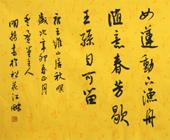 女蓮動下漁舟
隨意春芳歇
王孫自可留
唐王維山居秋暝
歲次辛卯春月
書於松花江畔